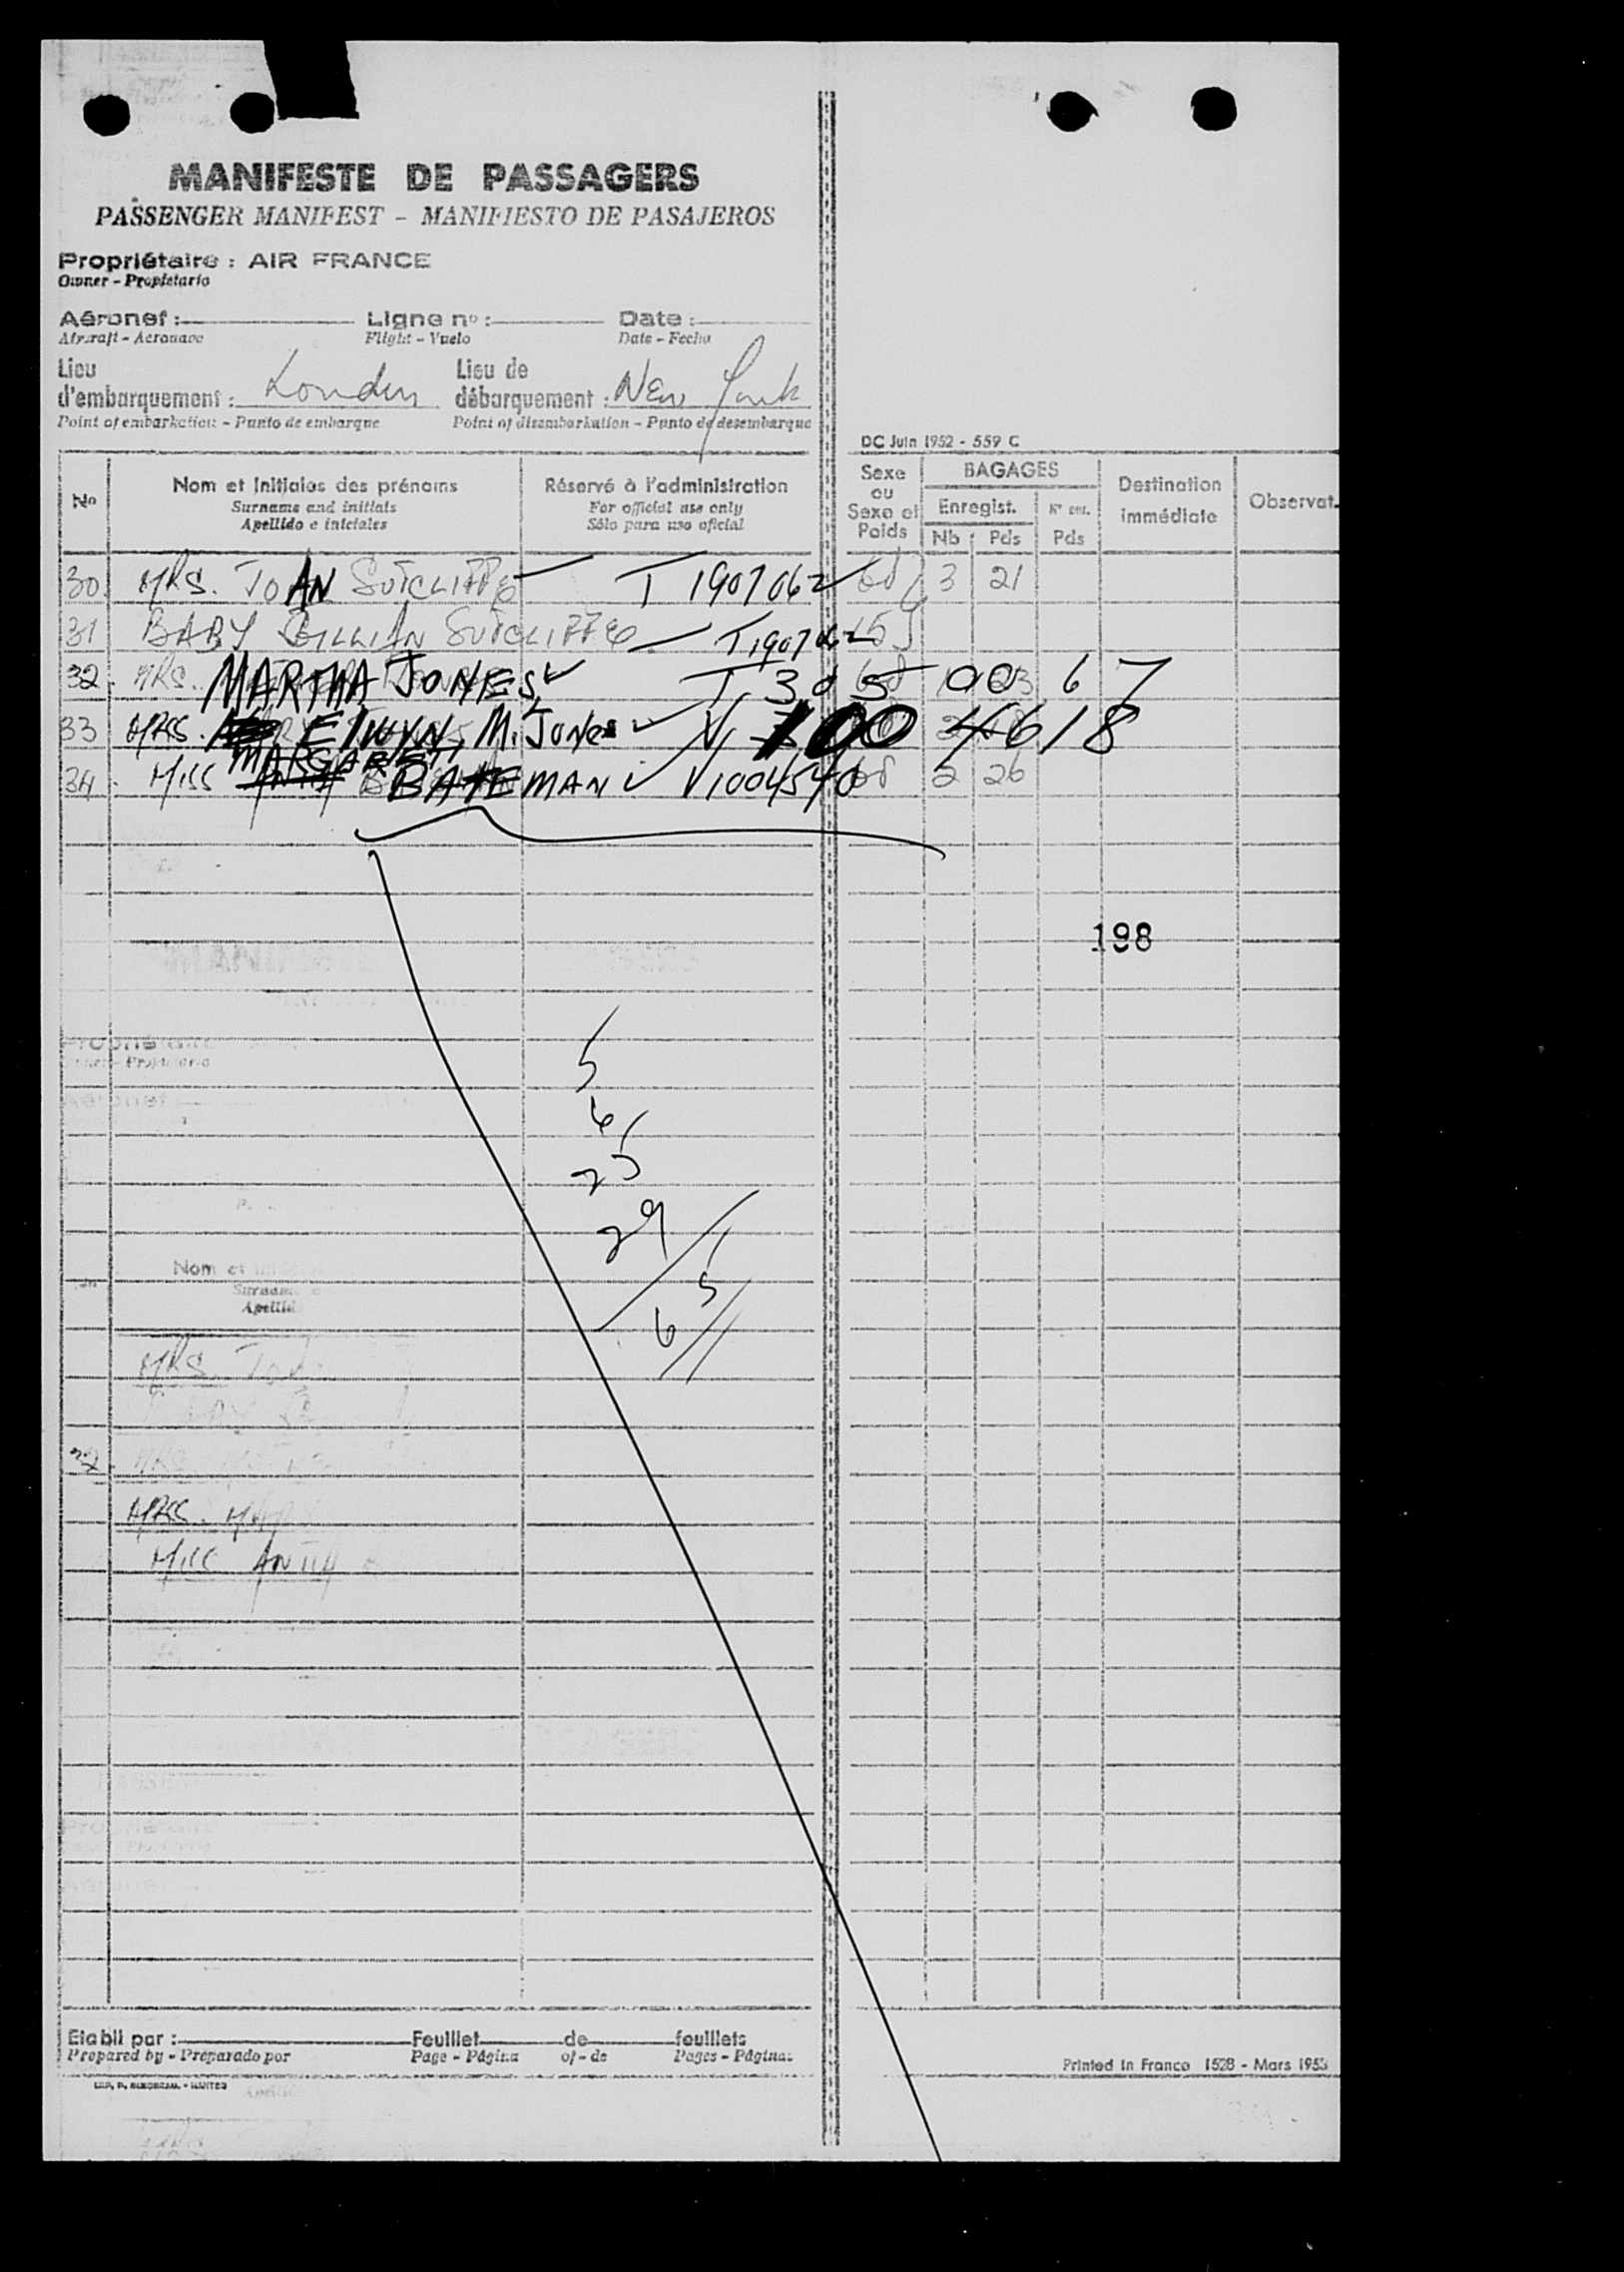 MANIFESTE DE PASSAGERS
PASSENGER MANIFEST - MANIFIESTO DE PASAJEROS
Propriétaire : AIR FRANCE
Owner - Propietario
Aéronef : Ligne no : Date :
Aircraft - Aeronave Flight - Vuelo Date - Fecha
Lieu d'embarquement : London Lieu de débarquement : New York
Point of embarkation - Punto de embarque Point of disembarkation - Punto de desembarque
DC Juin 1952 - 559 C
No Nom et initiales des prénoms Réservé à l'administration Sexe ou Sexe et Poids BAGAGES Destination immédiate Observat.
Surname and initials For official use only Enregist. Nb Pds Pds
Apellido e iniciales Sólo para uso oficial
30 MRS. JOAN SUTCLIFFE T 1907062 3 21
31 BABY GILLIAN SUTCLIFFE T1907062
32 MRS. MARTHA JONES T 305 00 67
33 MRS. M. JONES V 100 4618
34 MISS MARGARET BATEMAN V1004540 2 26
198
5
6
25
29
65
Nom et
Apellid
MRS.
MRS.
MISS ANITA
Etabli par : Feuillet de feuillets
Prepared by - Preparado por Page - Página of - de Pages - Páginas
Printed in France 1528 - Mars 1953